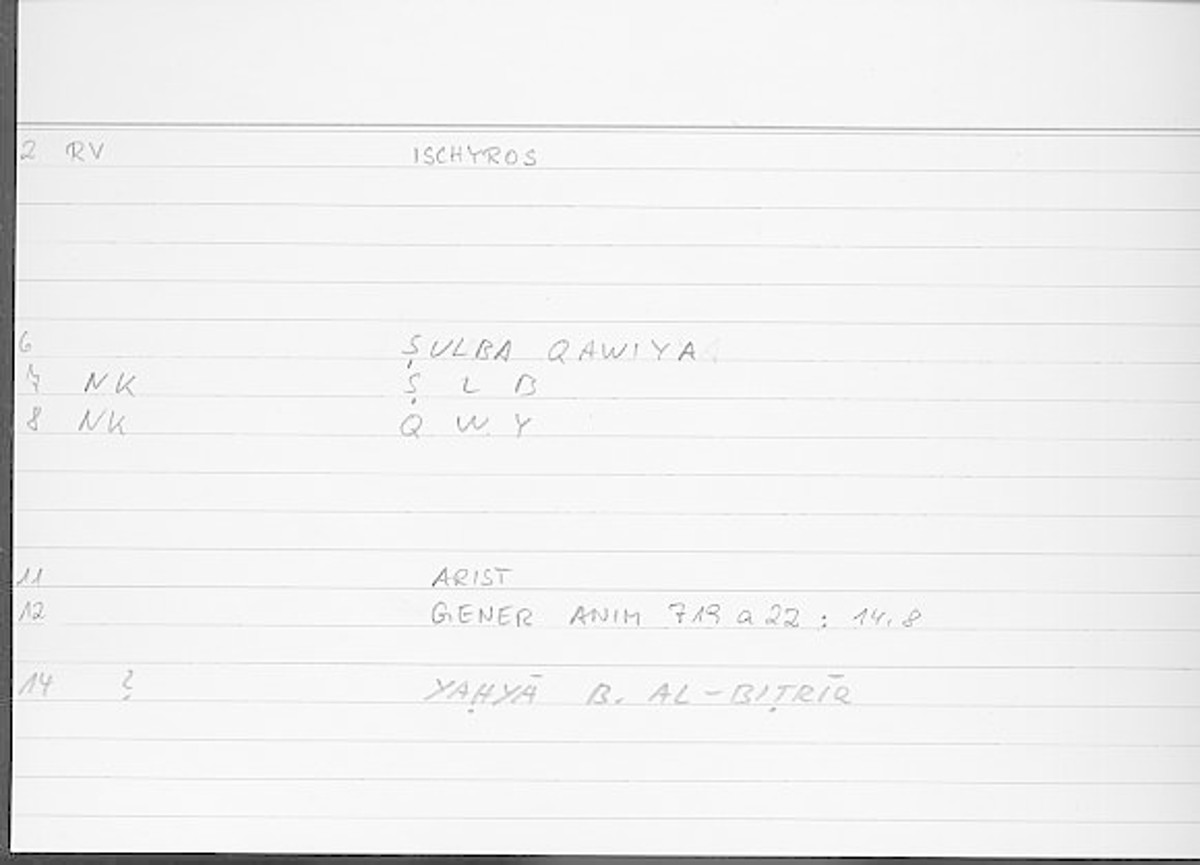 2 RV ISCHYROS
6 ṢULBA QAWIYA
7 NK Ṣ L B
8 NK Q W Y
11 ARIST
12 GENER ANIM 719 a 22 : 14.8
14 ? YAḤYĀ B. AL-BIṬRĪQ